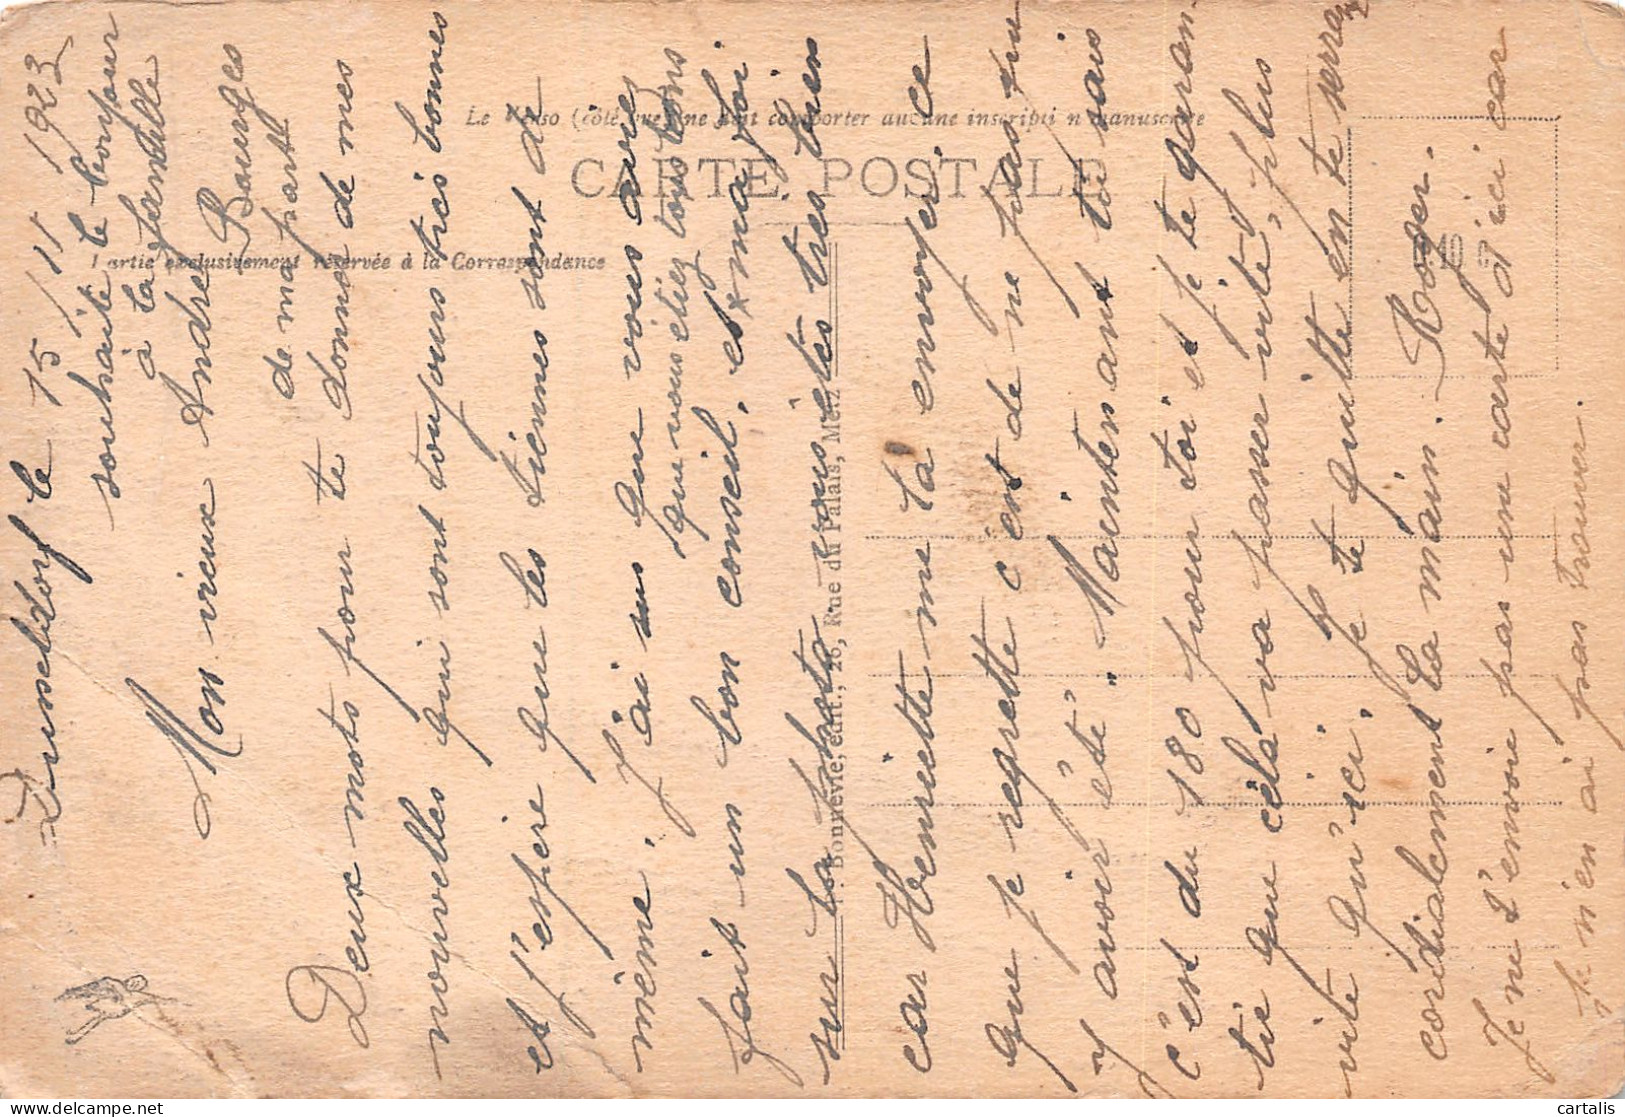 Dusseldorf le 15/11 1923
souhaite le bonjour
à la famille
Bourges
de ma part
Mon vieux André
Deux mots pour te donné de mes
nouvelles qui sont toujours très bonnes
et j'espère que les tiennes sont de
mieme. J'ai su que vous avez
que vous étiez tous bons
fait un bon conseil, et ma foi
sur la photo vous êtes très bien
car Henriette me l'a envoyer, ce
que je regrette c'est de ne pas
y avoir été. Maintenant tu sais
c'est du 180 pour toi et je te garen
tie que cela va passer vite, plus
vite qu'ici. Je te quitte en te serra
cordialement la main. Roger.
Je ne t'envoie pas une carte d'ici car
je n'en ai pas trouver.
Le Verso (côté vue) ne doit comporter aucune inscripti n manuscrite
CARTE POSTALE
Partie exclusivement réservée à la Correspondance
Bonnevie, édit., 26, Rue du Palais, Metz
cartalis